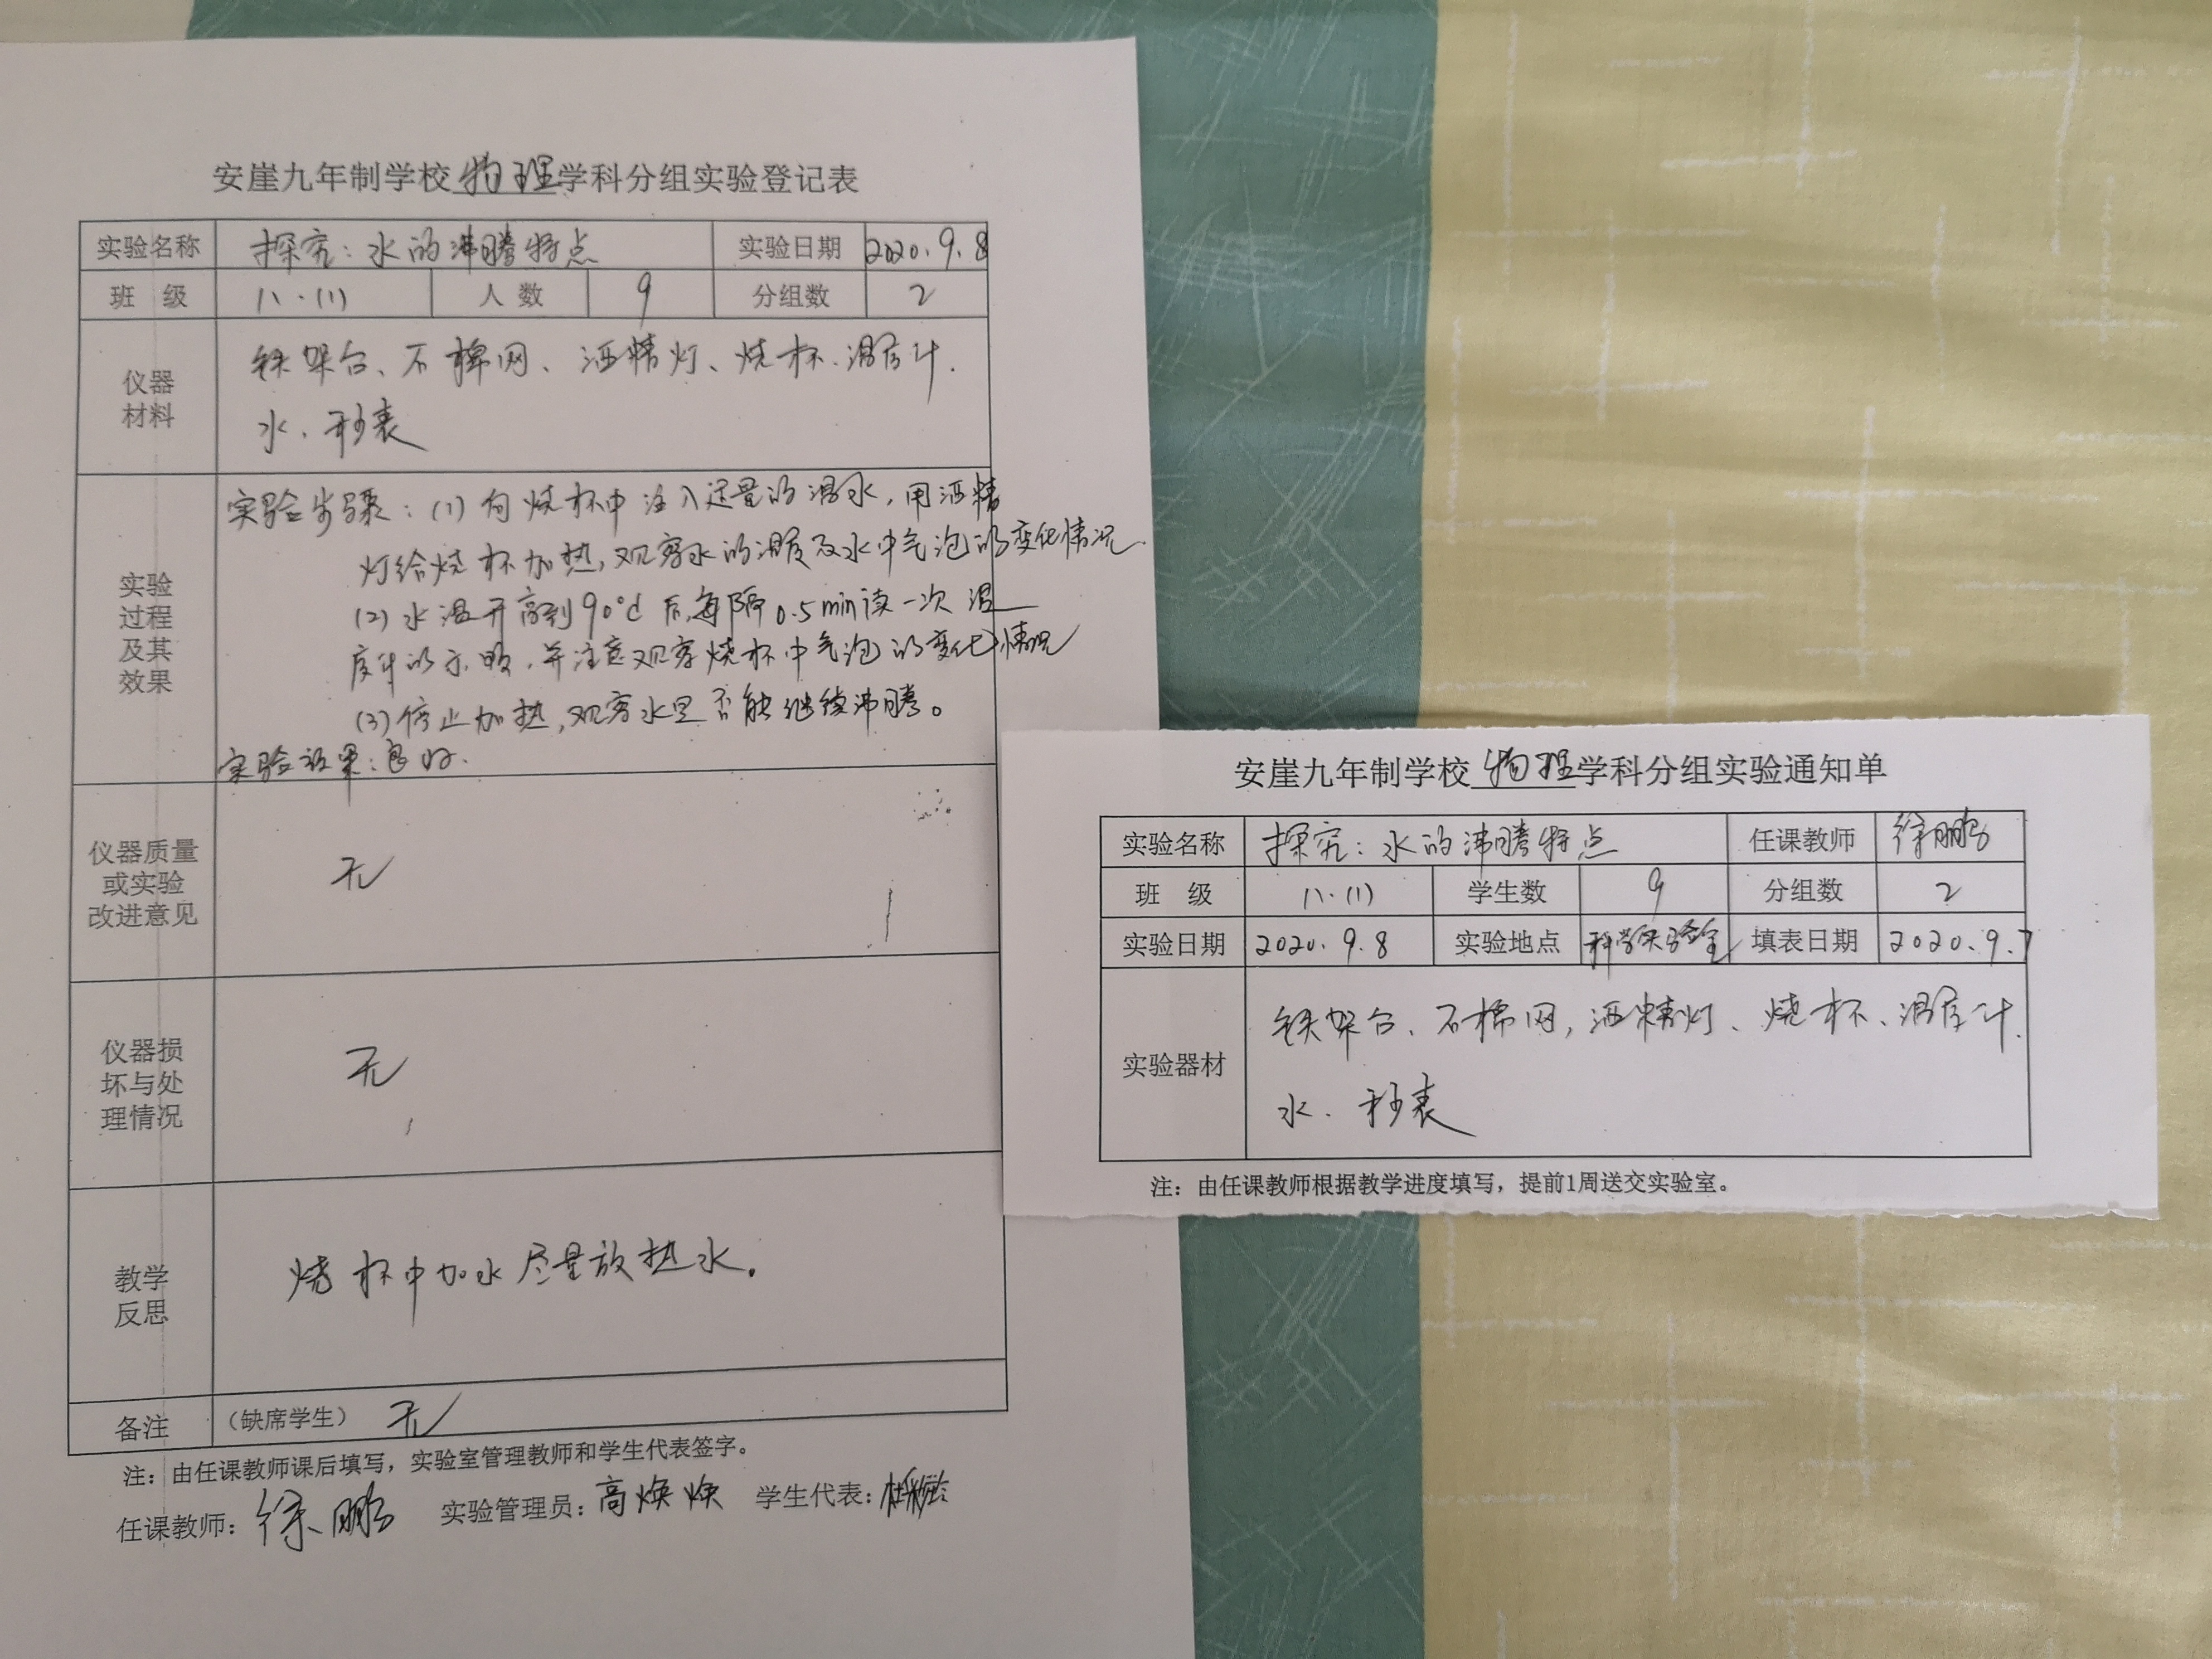 安崖九年制学校物理学科分组实验登记表
实验名称 探究：水的沸腾特点 实验日期 2020.9.8
班 级 八.(1) 人 数 9 分组数 2
仪器
材料
铁架台、石棉网、酒精灯、烧杯、温度计.
水、秒表
实验
过程
及其
效果
实验步骤：(1)向烧杯中注入适量的温水，用酒精
灯给烧杯加热，观察水的温度及水中气泡的变化情况.
(2)水温升高到90℃后，每隔0.5min读一次温
度计的示数，并注意观察烧杯中气泡的变化情况
(3)停止加热，观察水是否能继续沸腾。
实验效果：良好.
仪器质量
或实验
改进意见
无
仪器损
坏与处
理情况
无
教学
反思
烧杯中加水尽量放热水。
备注 (缺席学生) 无
注：由任课教师课后填写，实验室管理教师和学生代表签字。
任课教师：徐鹏 实验管理员：高焕焕 学生代表：
安崖九年制学校物理学科分组实验通知单
实验名称 探究：水的沸腾特点 任课教师 徐鹏
班 级 八.(1) 学生数 9 分组数 2
实验日期 2020.9.8 实验地点 科学实验室 填表日期 2020.9.7
实验器材
铁架台、石棉网，酒精灯、烧杯、温度计.
水、秒表
注：由任课教师根据教学进度填写，提前1周送交实验室。